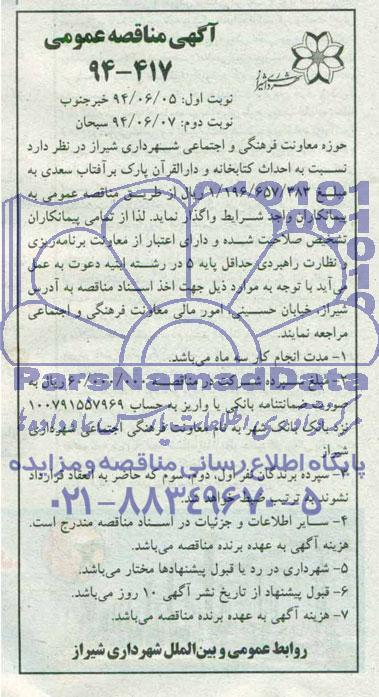 آگهی مناقصه عمومی
۹۴-۴۱۷
شهرداری شیراز
نوبت اول: ۹۴/۰۶/۰۵ خبرجنوب
نوبت دوم: ۹۴/۰۶/۰۷ سبحان
حوزه معاونت فرهنگی و اجتماعی شهرداری شیراز در نظر دارد
نسبت به احداث کتابخانه و دارالقرآن پارک برآفتاب سعدی به
مبلغ ۱/۱۹۶/۶۵۷/۳۸۳ ریال از طریق مناقصه عمومی به
پیمانکاران واجد شرایط واگذار نماید. لذا از تمامی پیمانکاران
تشخیص صلاحیت شده و دارای اعتبار از معاونت برنامه‌ریزی
و نظارت راهبردی حداقل پایه ۵ در رشته ابنیه دعوت به عمل
می‌آید با توجه به موارد ذیل جهت اخذ اسناد مناقصه به آدرس
شیراز، خیابان حسینی، امور مالی معاونت فرهنگی و اجتماعی
مراجعه نمایند.
۱- مدت انجام کار سه ماه می‌باشد.
۲- مبلغ سپرده شرکت در مناقصه ۶۰/۰۰۰/۰۰۰ ریال به
صورت ضمانتنامه بانکی یا واریز به حساب ۱۰۰۷۹۱۵۵۷۹۶۹
نزد بانک شهر به نام معاونت فرهنگی اجتماعی شهرداری
شیراز
۳- سپرده برندگان نفر اول، دوم، سوم که حاضر به انعقاد قرارداد
نشوند به ترتیب ضبط خواهد شد.
۴- سایر اطلاعات و جزئیات در اسناد مناقصه مندرج است.
هزینه آگهی به عهده برنده مناقصه می‌باشد.
۵- شهرداری در رد یا قبول پیشنهادها مختار می‌باشد.
۶- قبول پیشنهاد از تاریخ نشر آگهی ۱۰ روز می‌باشد.
۷- هزینه آگهی به عهده برنده مناقصه می‌باشد.
روابط عمومی و بین‌الملل شهرداری شیراز
ParsNamadData
پایگاه اطلاع رسانی مناقصه و مزایده
۰۲۱-۸۸۳۴۹۶۷۰-۵